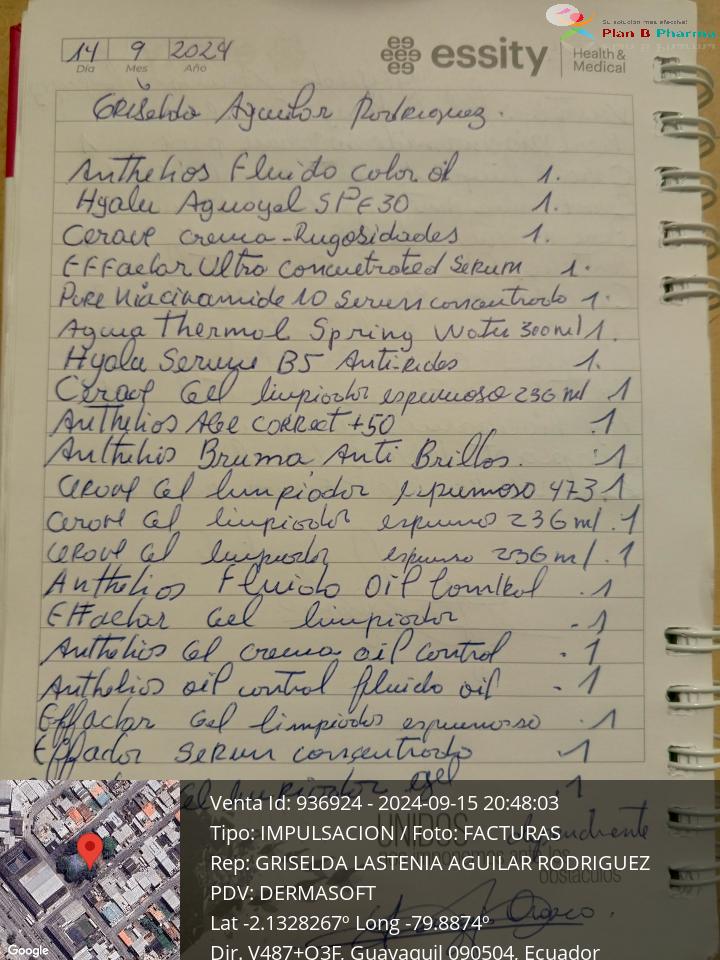 Su solución más efectiva!
Plan B Pharma
14 9 2024
Día Mes Año
essity Health & Medical
Griselda Aguilar Rodriguez.
Anthelios Fluido color oil 1.
Hyalu Aguagel SPF 30 1.
Cerave crema-Rugosidades 1.
Effaclar Ultra Concuetrated Serum 1.
Pure Niacinamide 10 Serum concentrado 1.
Agua Thermal Spring Water 300ml 1.
Hyalu Serum B5 Anti-rides 1.
Cerave Gel limpiador espumoso 236 ml 1
Anthelios Age correct +50 .1
Anthelios Bruma Anti Brillos. .1
Cerave Gel limpiador espumoso 473.1
Cerave Gel limpiador espumoso 236 ml .1
Cerave Gel limpiador espumoso 236 ml .1
Anthelios Fluido Oil Control .1
Effaclar Gel limpiador .1
Anthelios Gel crema oil control .1
Anthelios oil control fluido oil .1
Effaclar Gel limpiador espumoso .1
Effaclar Serum concentrado .1
Gel limpiador .1
UNIDOS
obstáculos
Orozco.
Venta Id: 936924 - 2024-09-15 20:48:03
Tipo: IMPULSACION / Foto: FACTURAS
Rep: GRISELDA LASTENIA AGUILAR RODRIGUEZ
PDV: DERMASOFT
Lat -2.1328267º Long -79.8874º
Dir. V487+Q3F, Guayaquil 090504, Ecuador
Google